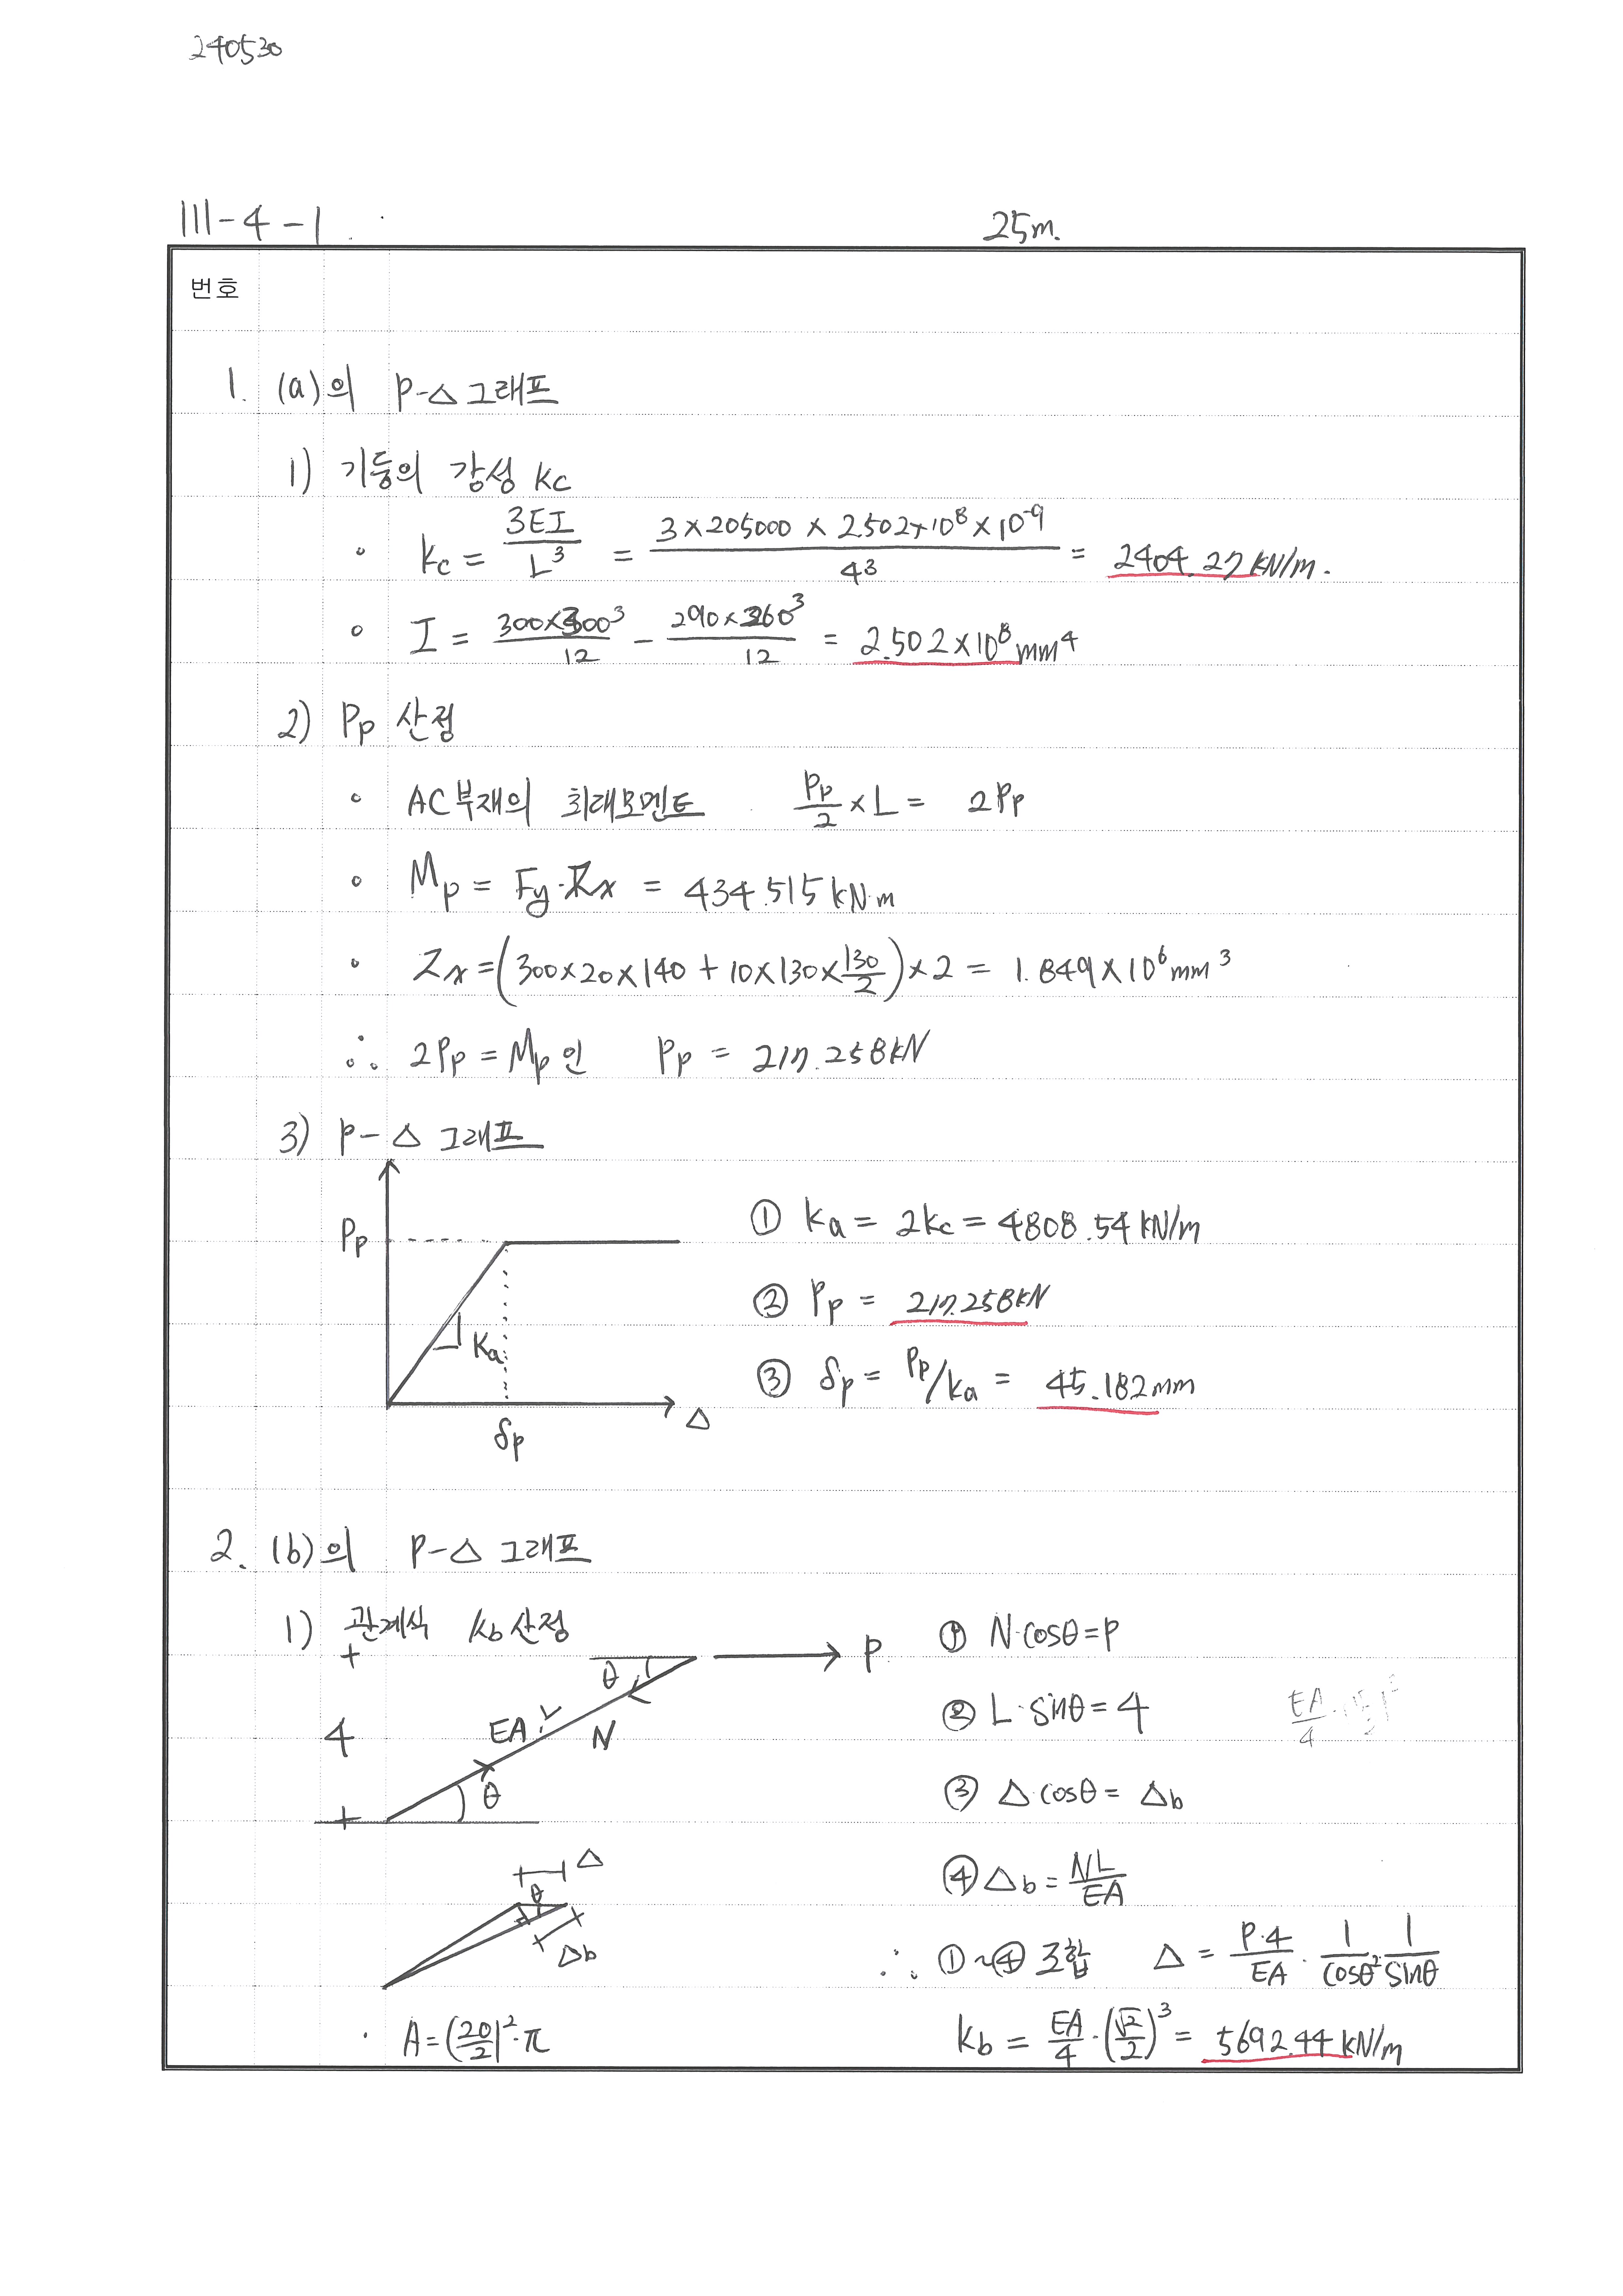 240530
111-4-1.
25m.
번호
1. (a)의 P-△ 그래프
1) 기둥의 강성 kc
∘ kc = 3EI / L³ = 3×205000×2.502×10⁸×10⁻⁹ / 4³ = 2404.27 kN/m.
∘ I = 300×300³/12 - 290×260³/12 = 2.502×10⁸ mm⁴
2) Pp 산정
∘ AC부재의 최대모멘트 Pp/2 × L = 2Pp
∘ Mp = Fy·Zx = 434.515 kN·m
∘ Zx = (300×20×140 + 10×130×130/2)×2 = 1.849×10⁶ mm³
∴ 2Pp = Mp 인 Pp = 217.258kN
3) P-△ 그래프
Pp
Ka
δp
△
① ka = 2kc = 4808.54 kN/m
② Pp = 217.258kN
③ δp = Pp/ka = 45.182mm
2. (b)의 P-△ 그래프
1) 관계식 kb 산정
P
θ
4
EA, L
N
θ
① N·cosθ = P
② L·sinθ = 4
EA/4
③ △·cosθ = △b
④ △b = NL/EA
△
θ
△b
∴ ①~④ 조합 △ = P·4/EA · 1/cosθ² · 1/sinθ
· A = (20/2)²·π
kb = EA/4 · (√2/2)³ = 5692.44 kN/m